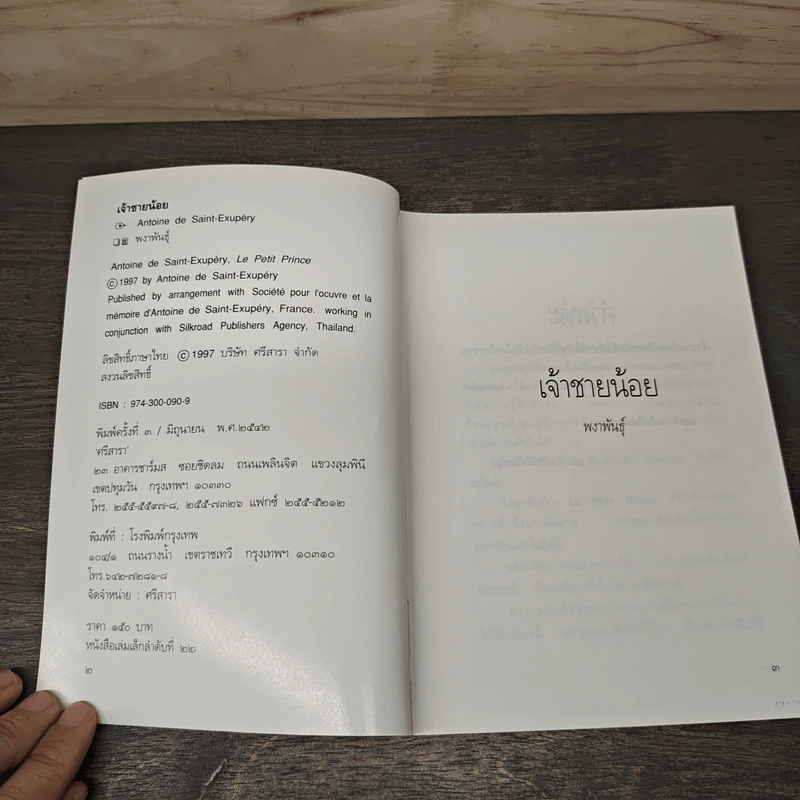 เจ้าชายน้อย
Antoine de Saint-Exupéry
พงาพันธุ์
Antoine de Saint-Exupéry, Le Petit Prince
©1997 by Antoine de Saint-Exupéry
Published by arrangement with Société pour l'ocuvre et la
mémoire d'Antoine de Saint-Exupéry, France. working in
conjunction with Silkroad Publishers Agency, Thailand.
ลิขสิทธิ์ภาษาไทย ©1997 บริษัท ศรีสารา จำกัด
สงวนลิขสิทธิ์
ISBN : 974-300-090-9
พิมพ์ครั้งที่ ๓ / มิถุนายน พ.ศ.๒๕๔๒
'ศรีสารา'
๒๓ อาคารชาร์มส ซอยชิดลม ถนนเพลินจิต แขวงลุมพินี
เขตปทุมวัน กรุงเทพฯ ๑๐๓๓๐
โทร. ๒๕๕-๕๕๙๗-๘, ๒๕๕-๗๓๒๖ แฟกซ์ ๒๕๕-๕๒๑๒
พิมพ์ที่ : โรงพิมพ์กรุงเทพ
๑๐๔/๑ ถนนรางน้ำ เขตราชเทวี กรุงเทพฯ ๑๐๓๑๐
โทร.๖๔๒-๗๒๘๑-๘
จัดจำหน่าย : ศรีสารา
ราคา ๑๕๐ บาท
หนังสือเล่มเล็กลำดับที่ ๒๒
๒
เจ้าชายน้อย
พงาพันธุ์
๓